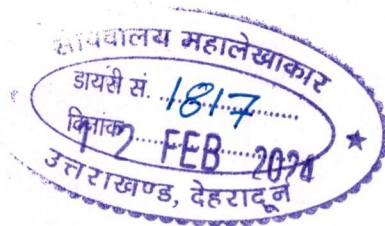 सचिवालय महालेखाकार
डायरी सं. 1817
दिनांक 12 FEB 2024
उत्तराखण्ड, देहरादून